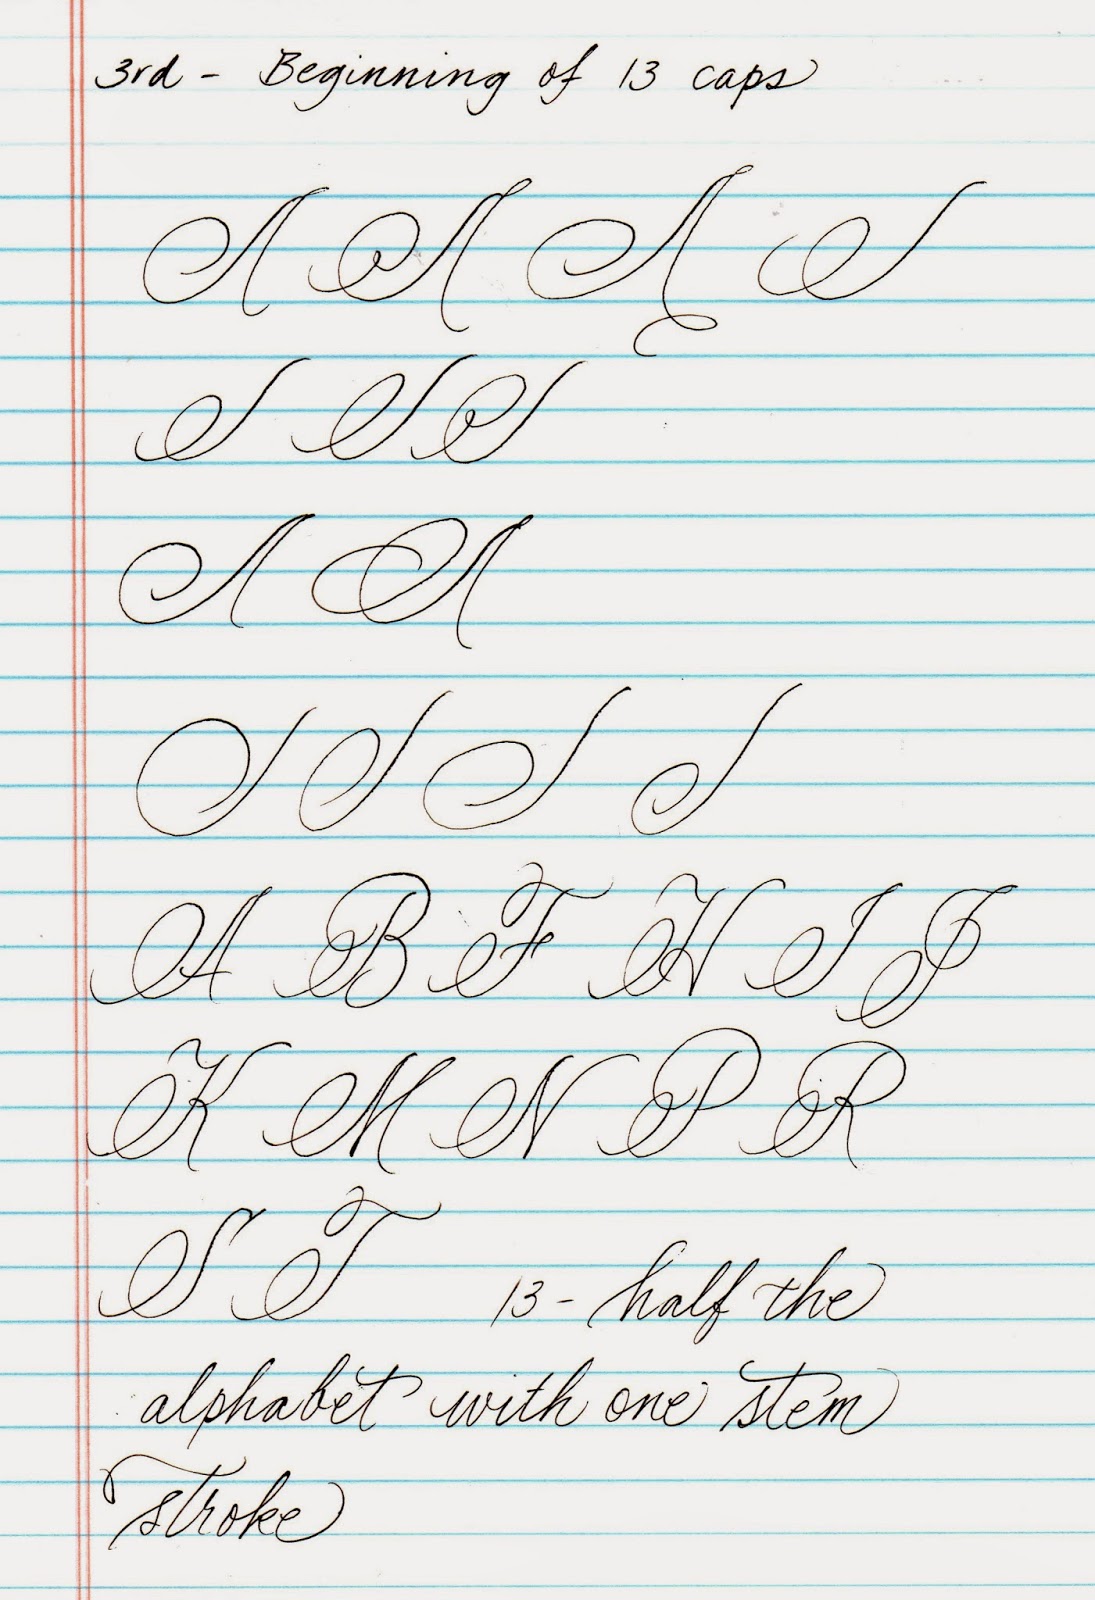 3rd - Beginning of 13 caps
A B F H I J
K M N P R
S T 13 - half the
alphabet with one stem
stroke